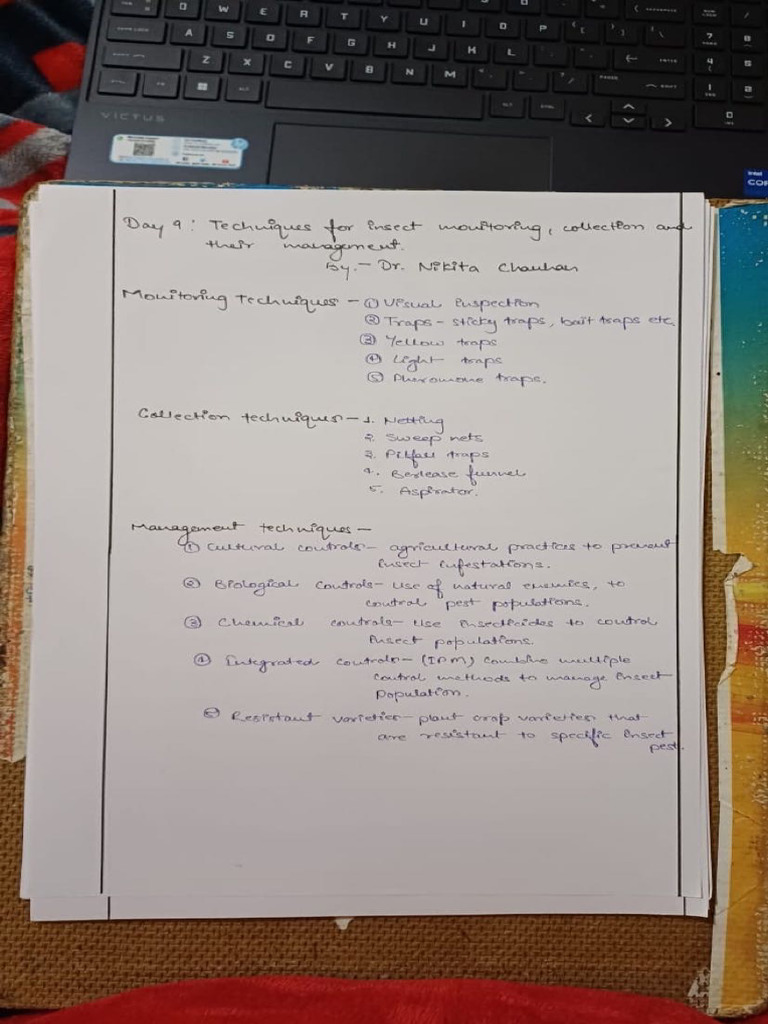 VICTUS
Day 9: Techniques for insect monitoring, collection and
their management.
By:- Dr. Nikita Chauhan
Monitoring Techniques - ① Visual inspection
② Traps - sticky traps, bait traps etc.
③ Yellow traps
④ Light traps
⑤ Pheromone traps.
Collection techniques - 1. Netting
2. Sweep nets
3. Pitfall traps
4. Berlease funnel
5. Aspirator.
Management techniques -
① Cultural controls - agricultural practices to prevent
insect infestations.
② Biological controls - Use of natural enemies, to
control pest populations.
③ Chemical controls - Use insecticides to control
insect populations.
④ Integrated controls - (IPM) combine multiple
control methods to manage insect
population.
⑤ Resistant varieties - plant crop varieties that
are resistant to specific insect
pest.